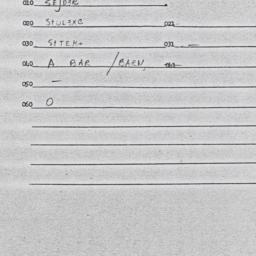 010 SEJDER
020 STULEXC 021
030 SITEK+ 031 —
040 A BAR / BAEN,
050 —
060 O